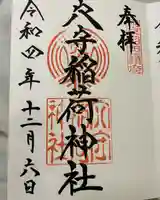 奉拝
穴守稲荷神社
令和四年十二月六日